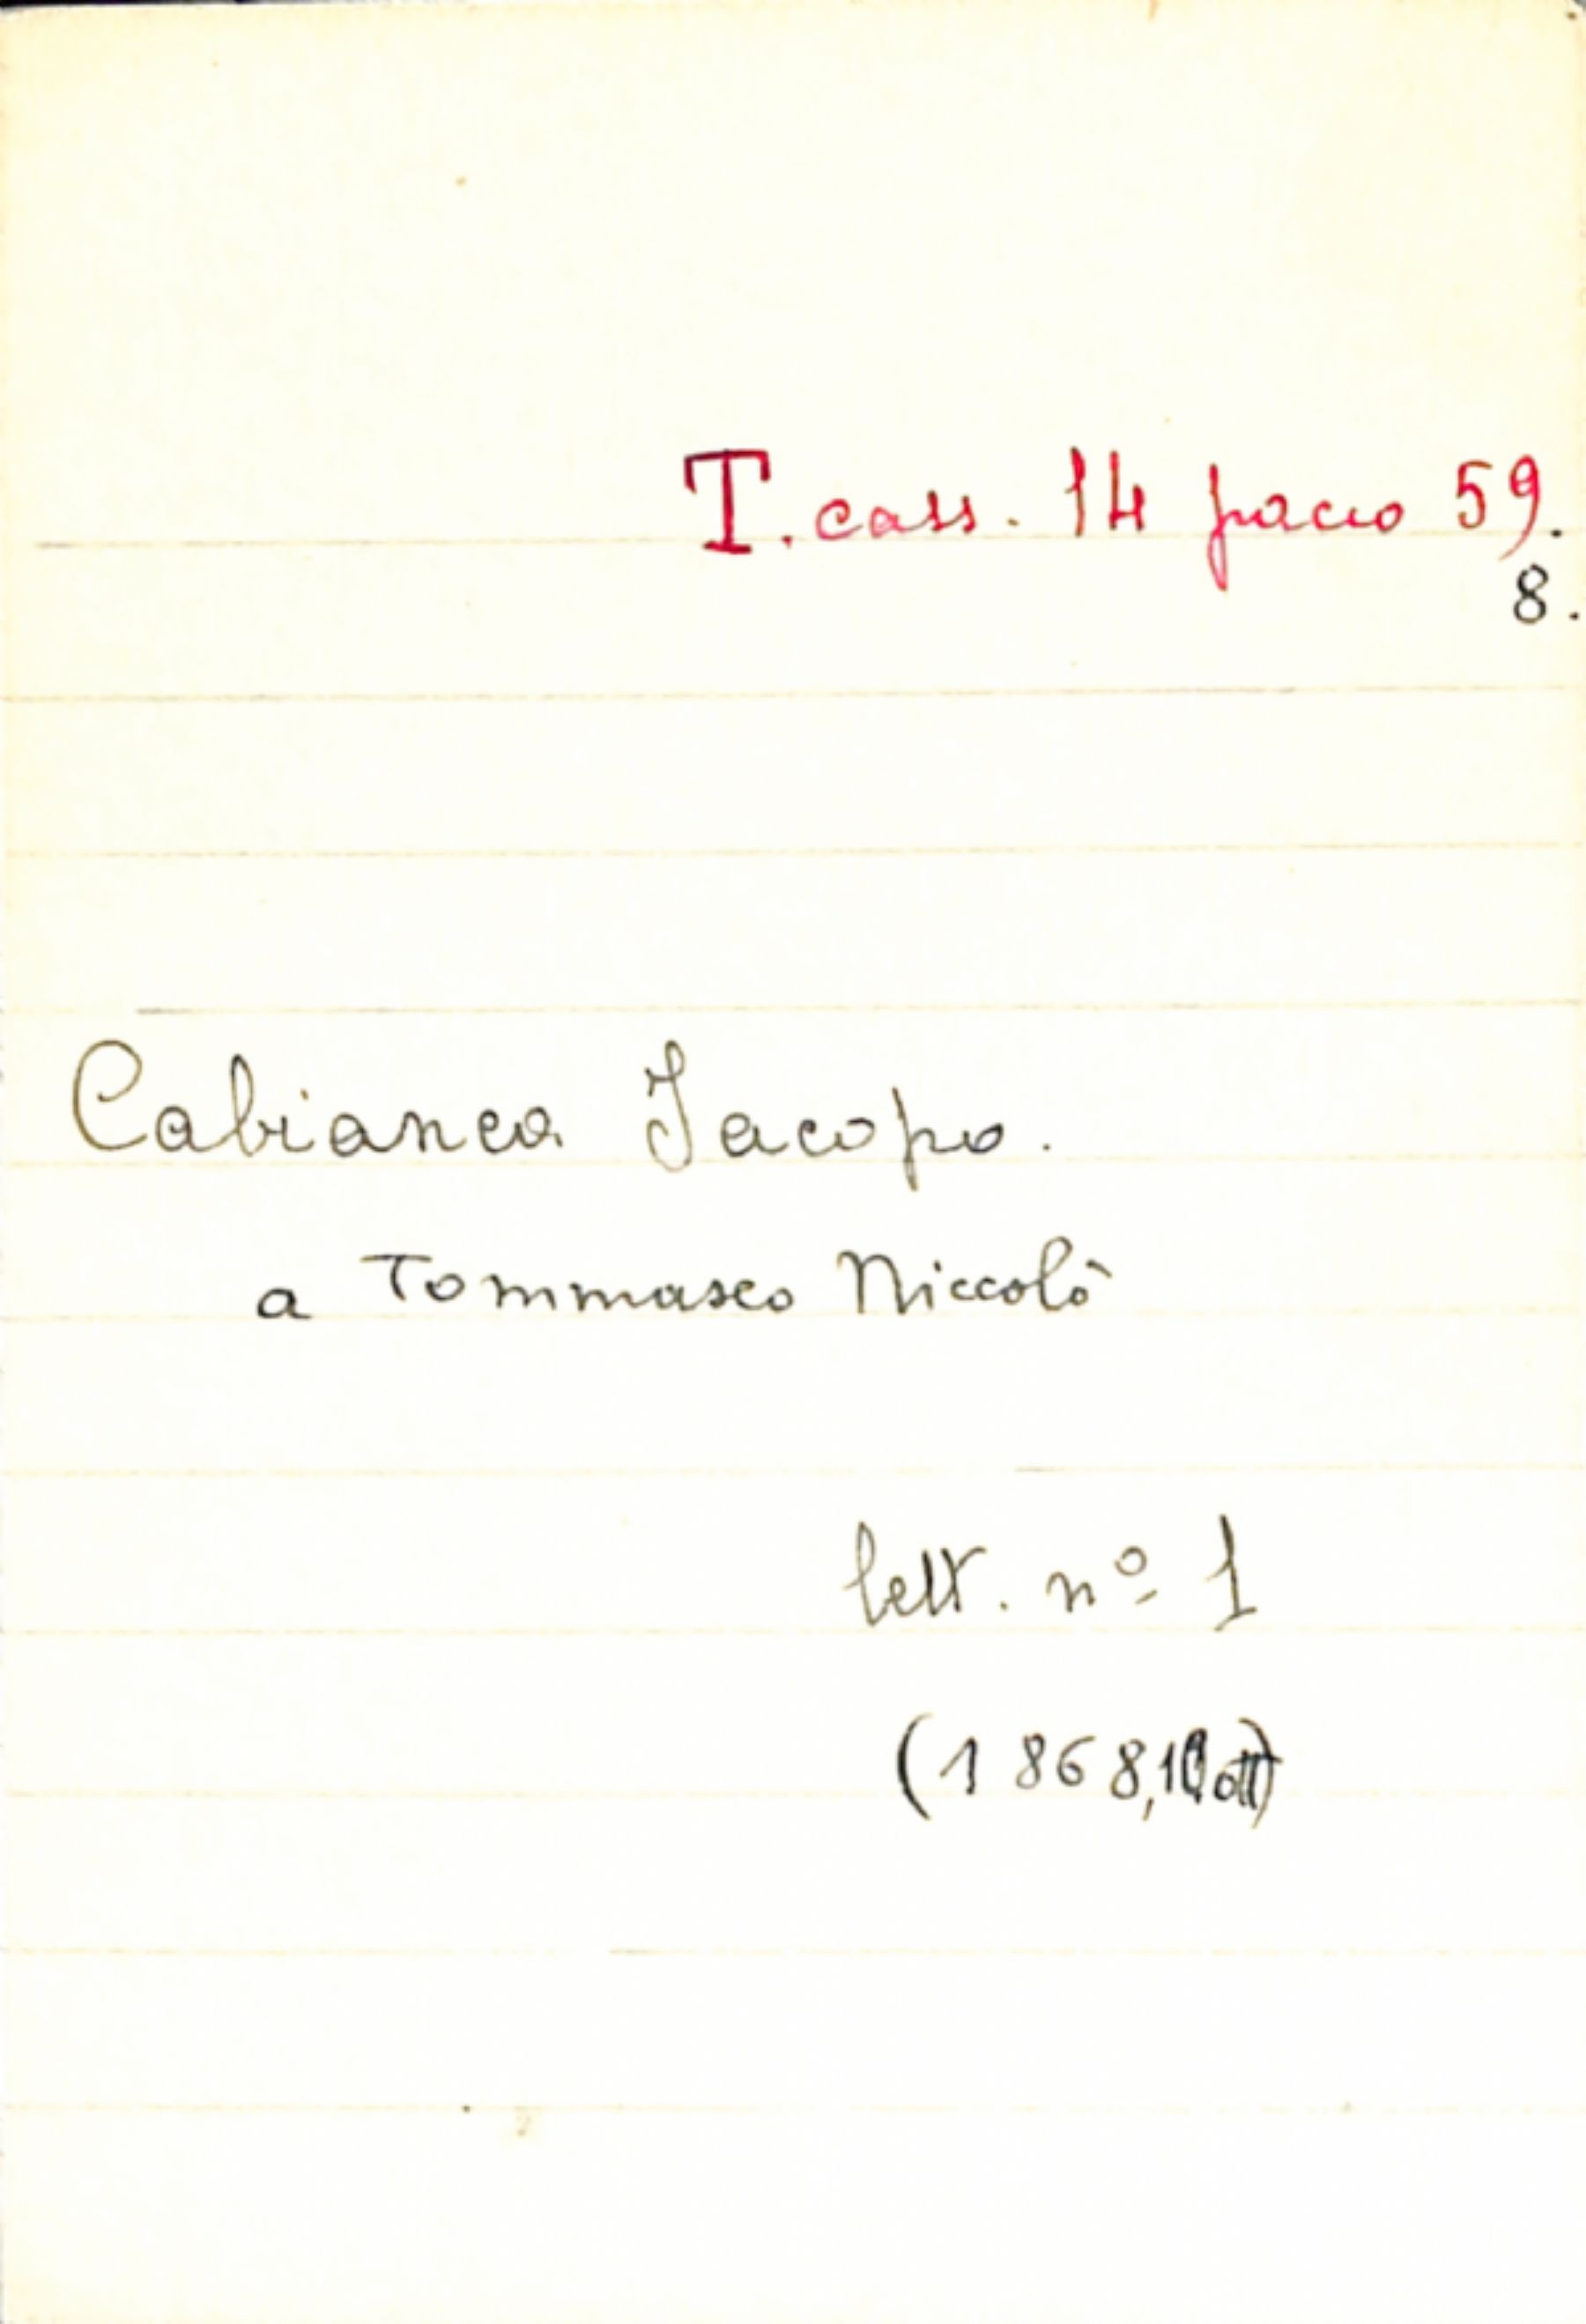 T. cass. 14 pacco 59.
8.
Cabianca Jacopo.
a Tommaseo Niccolò
lett. nº 1
(1868, ott)